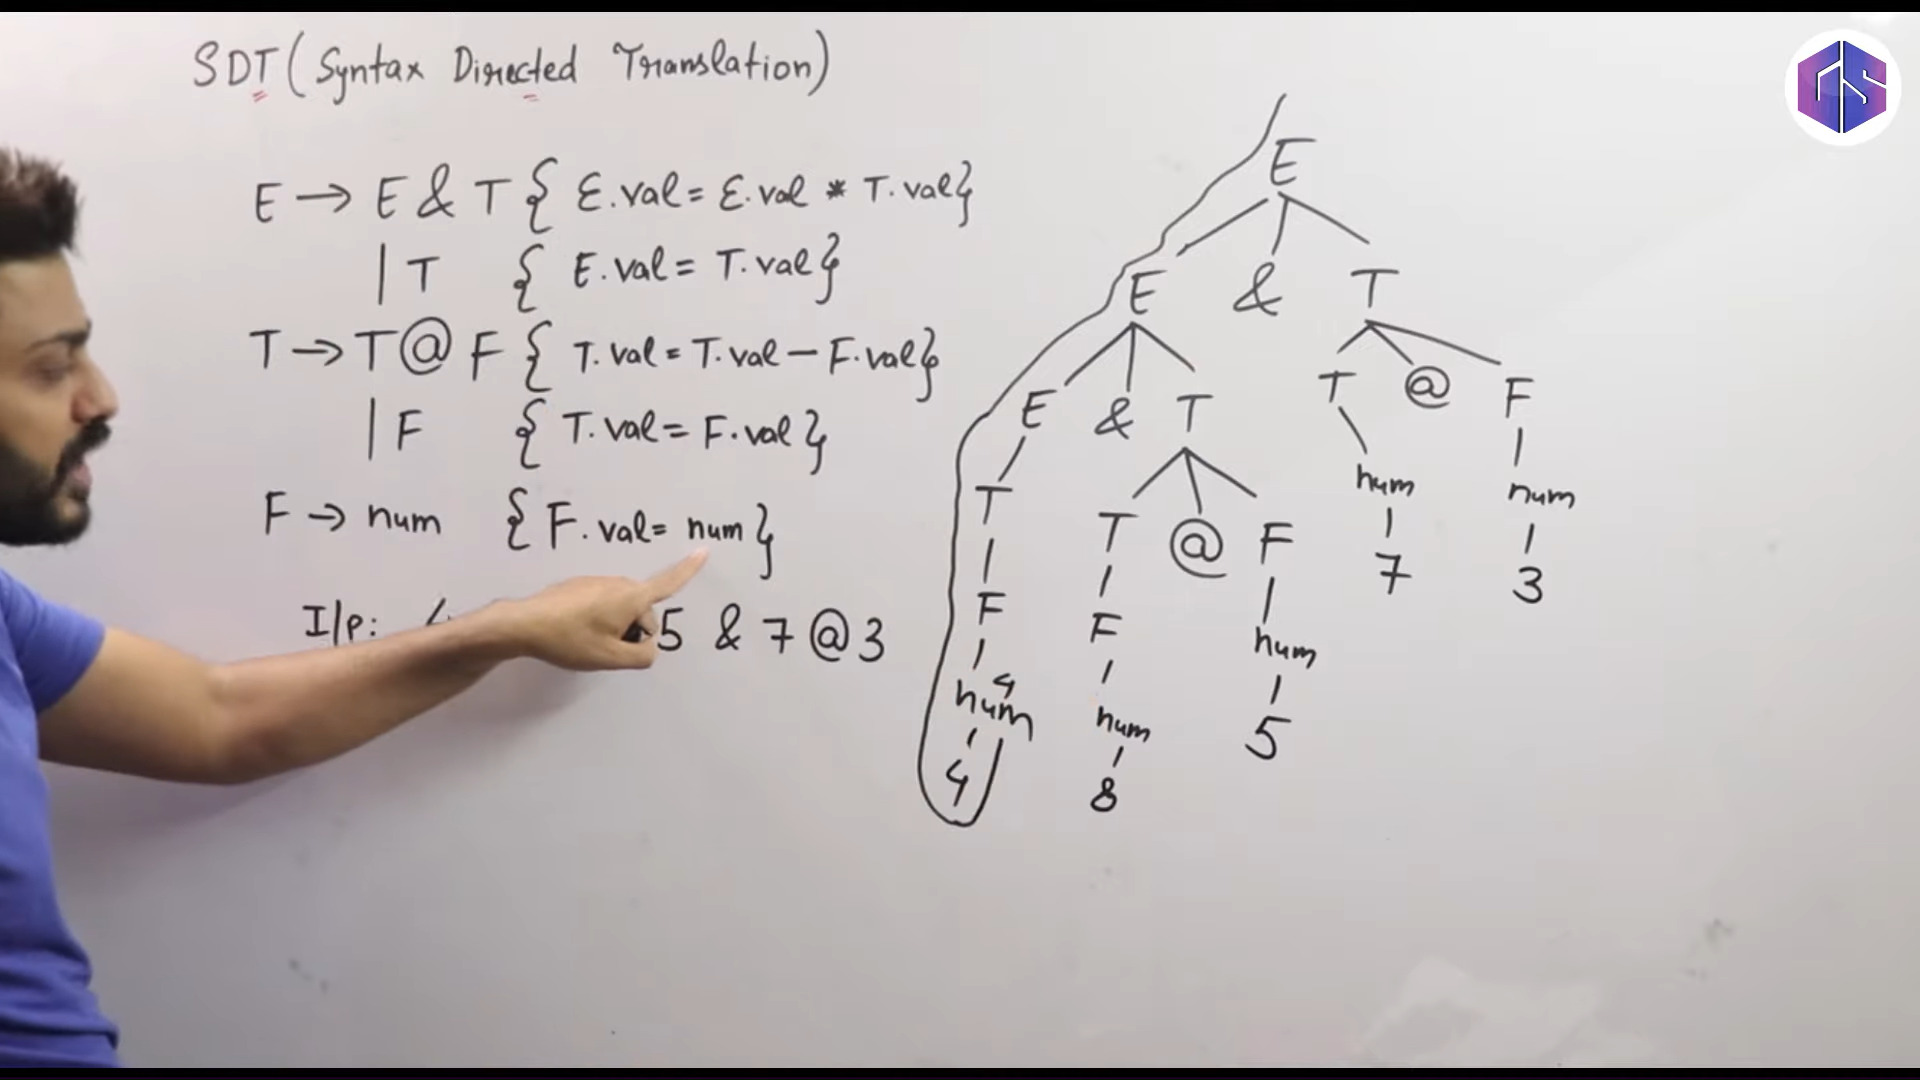 SDT (Syntax Directed Translation)
E → E & T { E.val = E.val * T.val}
| T { E.val = T.val}
T → T @ F { T.val = T.val - F.val}
| F { T.val = F.val}
F → num { F.val = num }
I/p: 5 & 7 @ 3
E
E & T
E & T T @ F
T T @ F num num
F F num 7 3
num 4 num 5
4 8
GS